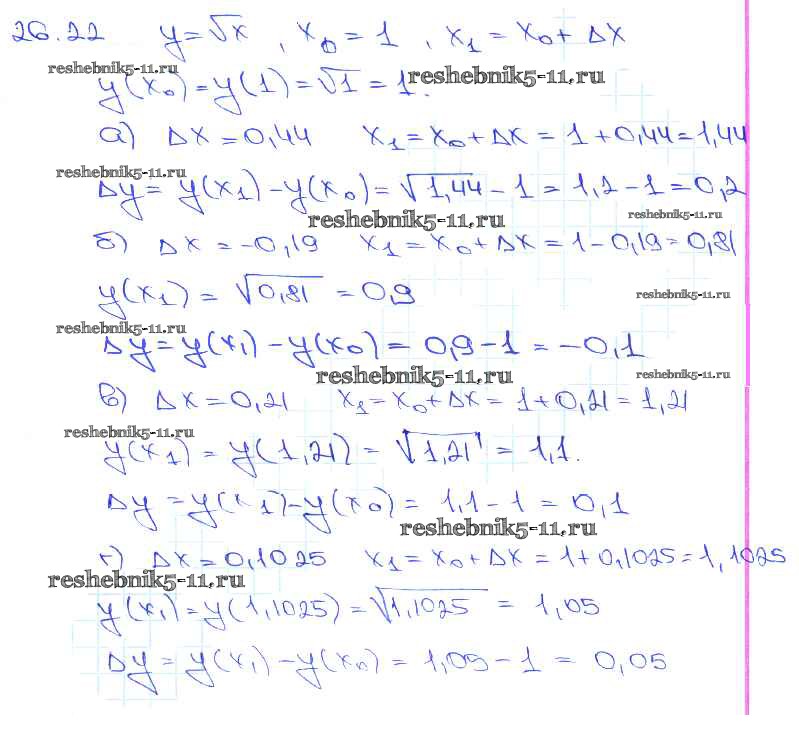 26.22 y=√x , x₀ = 1 , x₁ = x₀ + Δx
reshebnik5-11.ru
reshebnik5-11.ru
y(x₀) = y(1) = √1 = 1.
а) Δx = 0,44 x₁ = x₀ + Δx = 1 + 0,44 = 1,44
reshebnik5-11.ru
Δy = y(x₁) - y(x₀) = √1,44 - 1 = 1,2 - 1 = 0,2
reshebnik5-11.ru
reshebnik5-11.ru
б) Δx = -0,19 x₁ = x₀ + Δx = 1 - 0,19 = 0,81
y(x₁) = √0,81 = 0,9
reshebnik5-11.ru
reshebnik5-11.ru
Δy = y(x₁) - y(x₀) = 0,9 - 1 = -0,1
reshebnik5-11.ru
reshebnik5-11.ru
в) Δx = 0,21 x₁ = x₀ + Δx = 1 + 0,21 = 1,21
reshebnik5-11.ru
y(x₁) = y(1,21) = √1,21 = 1,1.
Δy = y(x₁) - y(x₀) = 1,1 - 1 = 0,1
reshebnik5-11.ru
г) Δx = 0,1025 x₁ = x₀ + Δx = 1 + 0,1025 = 1,1025
reshebnik5-11.ru
y(x₁) = y(1,1025) = √1,1025 = 1,05
Δy = y(x₁) - y(x₀) = 1,05 - 1 = 0,05